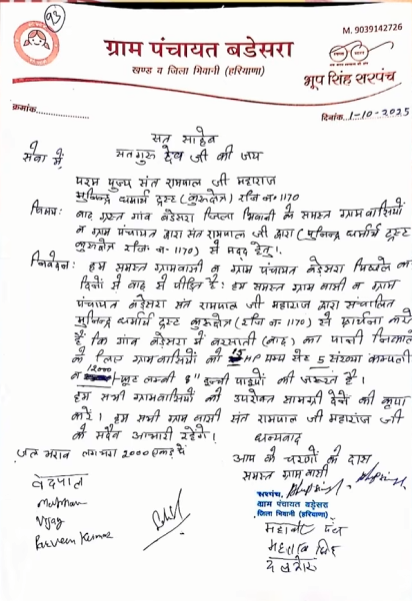 93
M. 9039142726
ग्राम पंचायत बडेसरा
खण्ड व जिला भिवानी (हरियाणा)
भूप सिंह सरपंच
क्रमांक
दिनांक 1-10-2025
सत साहेब
सेवा में सतगुरु देव जी की जय
परम पूज्य संत रामपाल जी महाराज
मुनिन्द्र धर्मार्थ ट्रस्ट (कुरुक्षेत्र) रजि न० 1170
विषय: बाढ़ ग्रस्त गांव बडेसरा जिला भिवानी के समस्त ग्रामवासियों
व ग्राम पंचायत द्वारा संत रामपाल जी द्वारा (मुनिन्द्र धर्मार्थ ट्रस्ट
कुरुक्षेत्र रजि. न० - 1170) से मदद हेतु।
निवेदन: हम समस्त ग्रामवासी व ग्राम पंचायत बडेसरा पिछले
दिनों से बाढ से पीड़ित है: हम समस्त ग्रामवासी व ग्राम
पंचायत बडेसरा संत रामपाल जी महाराज द्वारा संचालित
मुनिन्द्र धर्मार्थ ट्रस्ट कुरुक्षेत्र (रजि न० 1170) से प्रार्थना करते
है कि गांव बडेसरा में बरसाती (बाढ) का पानी निकालने
के लिए ग्रामवासियों को 15 HP पम्प सेट 5 संख्या
व 12000 फूट लम्बी 8" इन्ची पाइपों की जरूरत है।
हम सभी ग्रामवासियों को उपरोक्त सामग्री देने की कृपा
करें। हम सभी ग्राम वासी संत रामपाल जी महाराज जी
के सदैव आभारी रहेंगे।
धन्यवाद
जल भराव लगभग 2000 एकड़ में
आप के चरणों के दास
समस्त ग्रामवासी
वेदपाल
Vijay
Parveen Kumar
सरपंच,
ग्राम पंचायत बडेसरा
जिला भिवानी (हरियाणा)
पंच